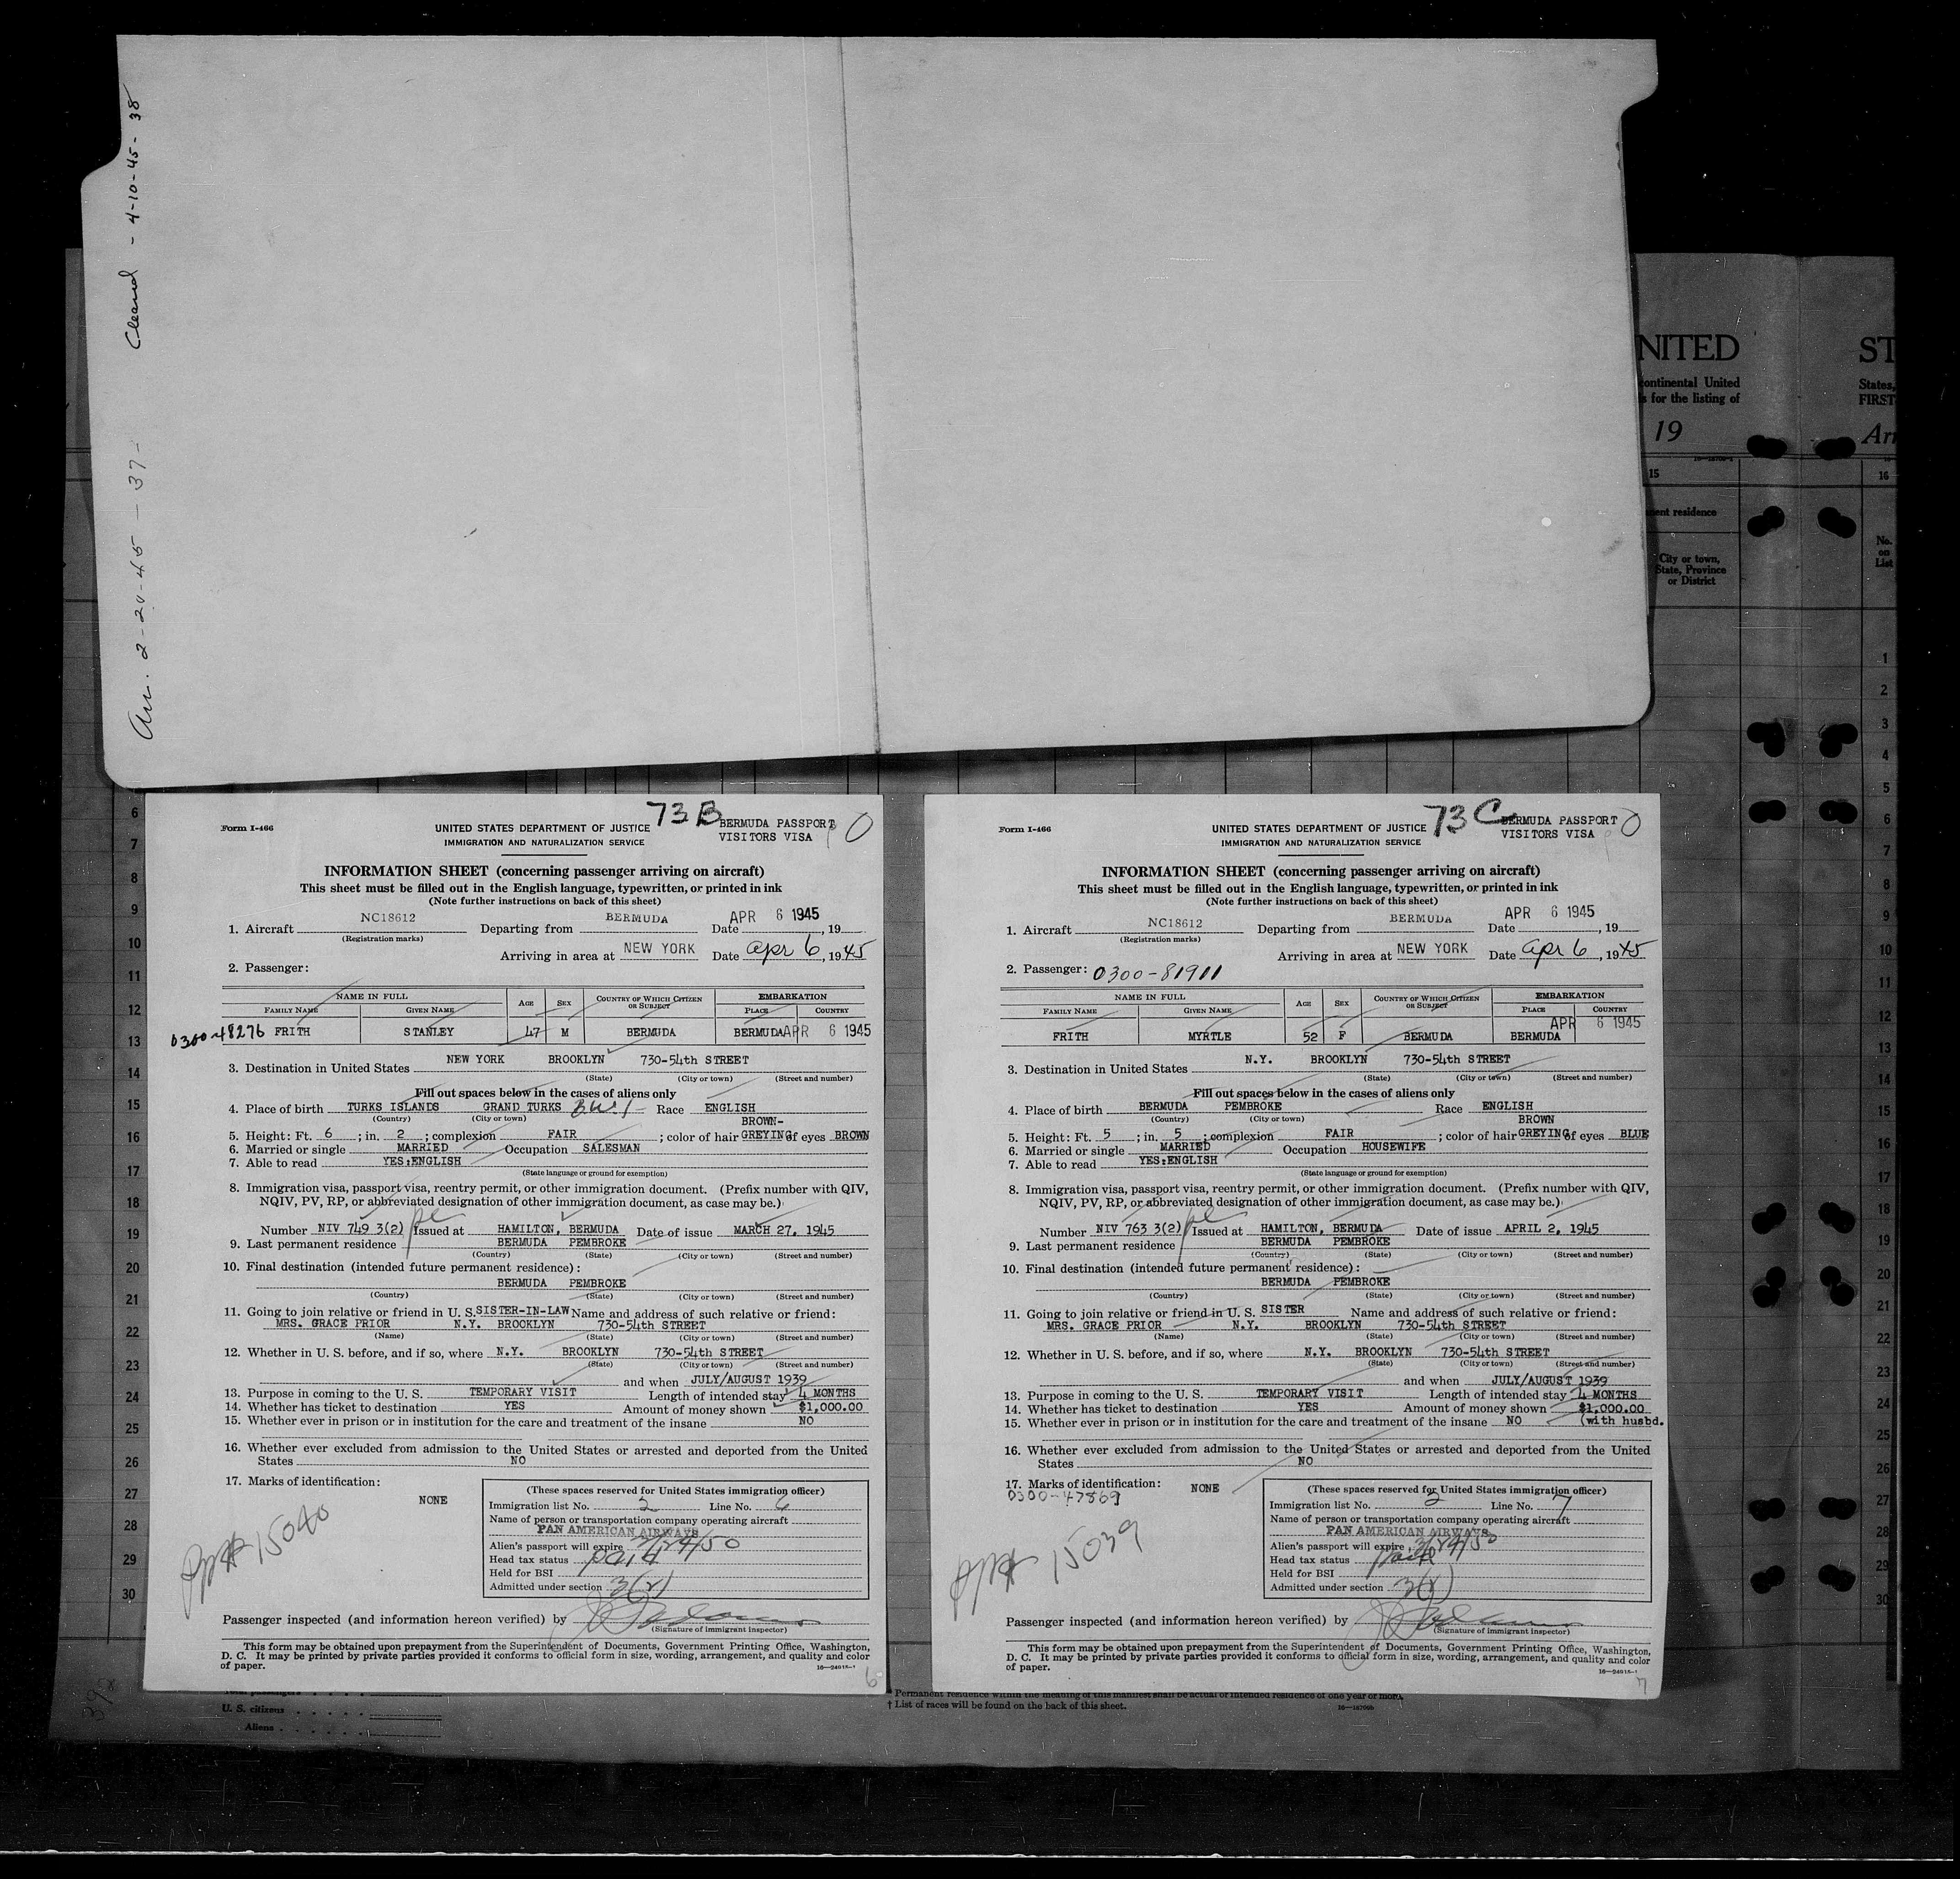 Cleared - 4-10-45- 38
Arr. 2-20-45 - 37-
NITED
continental United
s for the listing of
19
15
nent residence
City or town,
State, Province
or District
ST
States,
FIRST
Arr
16
No.
on
List
1
2
3
4
5
6
7
8
9
10
11
12
13
14
15
16
17
18
19
20
21
22
23
24
25
26
27
28
29
30
73 B
Form I-466
UNITED STATES DEPARTMENT OF JUSTICE
IMMIGRATION AND NATURALIZATION SERVICE
BERMUDA PASSPORT
VISITORS VISA
0
INFORMATION SHEET (concerning passenger arriving on aircraft)
This sheet must be filled out in the English language, typewritten, or printed in ink
(Note further instructions on back of this sheet)
1. Aircraft NC18612 Departing from BERMUDA Date APR 6 1945, 19
(Registration marks)
Arriving in area at NEW YORK Date Apr 6, 1945
2. Passenger:
NAME IN FULL AGE SEX COUNTRY OF WHICH CITIZEN OR SUBJECT EMBARKATION
FAMILY NAME GIVEN NAME PLACE COUNTRY
0300-48276 FRITH STANLEY 47 M BERMUDA BERMUDA APR 6 1945
3. Destination in United States NEW YORK BROOKLYN 730-54th STREET
(State) (City or town) (Street and number)
Fill out spaces below in the cases of aliens only
4. Place of birth TURKS ISLANDS GRAND TURKS B W I Race ENGLISH
(Country) (City or town)
BROWN-
5. Height: Ft. 6; in. 2; complexion FAIR; color of hair GREYING of eyes BROWN
6. Married or single MARRIED Occupation SALESMAN
7. Able to read YES:ENGLISH
(State language or ground for exemption)
8. Immigration visa, passport visa, reentry permit, or other immigration document. (Prefix number with QIV,
NQIV, PV, RP, or abbreviated designation of other immigration document, as case may be.)
Number NIV 749 3(2) Issued at HAMILTON, BERMUDA Date of issue MARCH 27, 1945
9. Last permanent residence BERMUDA PEMBROKE
(Country) (State) (City or town) (Street and number)
10. Final destination (intended future permanent residence):
BERMUDA PEMBROKE
(Country) (State) (City or town) (Street and number)
11. Going to join relative or friend in U. S. SISTER-IN-LAW Name and address of such relative or friend:
MRS. GRACE PRIOR N.Y. BROOKLYN 730-54th STREET
(Name) (State) (City or town) (Street and number)
12. Whether in U. S. before, and if so, where N.Y. BROOKLYN 730-54th STREET
(State) (City or town) (Street and number)
and when JULY/AUGUST 1939
13. Purpose in coming to the U. S. TEMPORARY VISIT Length of intended stay 4 MONTHS
14. Whether has ticket to destination YES Amount of money shown $1,000.00
15. Whether ever in prison or in institution for the care and treatment of the insane NO
16. Whether ever excluded from admission to the United States or arrested and deported from the United
States NO
17. Marks of identification:
NONE
15040
(These spaces reserved for United States immigration officer)
Immigration list No. 2 Line No. 6
Name of person or transportation company operating aircraft
PAN AMERICAN AIRWAYS
Alien's passport will expire 3/24/50
Head tax status paid
Held for BSI
Admitted under section 3(2)
Passenger inspected (and information hereon verified) by
(Signature of immigrant inspector)
This form may be obtained upon prepayment from the Superintendent of Documents, Government Printing Office, Washington,
D. C. It may be printed by private parties provided it conforms to official form in size, wording, arrangement, and quality and color
of paper.
16—24915-1
6
73 C
Form I-466
UNITED STATES DEPARTMENT OF JUSTICE
IMMIGRATION AND NATURALIZATION SERVICE
BERMUDA PASSPORT
VISITORS VISA
0
INFORMATION SHEET (concerning passenger arriving on aircraft)
This sheet must be filled out in the English language, typewritten, or printed in ink
(Note further instructions on back of this sheet)
1. Aircraft NC18612 Departing from BERMUDA Date APR 6 1945, 19
(Registration marks)
Arriving in area at NEW YORK Date Apr 6, 1945
2. Passenger: 0300-81911
NAME IN FULL AGE SEX COUNTRY OF WHICH CITIZEN OR SUBJECT EMBARKATION
FAMILY NAME GIVEN NAME PLACE COUNTRY
FRITH MYRTLE 52 F BERMUDA BERMUDA APR 6 1945
3. Destination in United States N.Y. BROOKLYN 730-54th STREET
(State) (City or town) (Street and number)
Fill out spaces below in the cases of aliens only
4. Place of birth BERMUDA PEMBROKE Race ENGLISH
(Country) (City or town)
BROWN
5. Height: Ft. 5; in. 5; complexion FAIR; color of hair GREYING of eyes BLUE
6. Married or single MARRIED Occupation HOUSEWIFE
7. Able to read YES:ENGLISH
(State language or ground for exemption)
8. Immigration visa, passport visa, reentry permit, or other immigration document. (Prefix number with QIV,
NQIV, PV, RP, or abbreviated designation of other immigration document, as case may be.)
Number NIV 763 3(2) Issued at HAMILTON, BERMUDA Date of issue APRIL 2, 1945
9. Last permanent residence BERMUDA PEMBROKE
(Country) (State) (City or town) (Street and number)
10. Final destination (intended future permanent residence):
BERMUDA PEMBROKE
(Country) (State) (City or town) (Street and number)
11. Going to join relative or friend in U. S. SISTER Name and address of such relative or friend:
MRS. GRACE PRIOR N.Y. BROOKLYN 730-54th STREET
(Name) (State) (City or town) (Street and number)
12. Whether in U. S. before, and if so, where N.Y. BROOKLYN 730-54th STREET
(State) (City or town) (Street and number)
and when JULY/AUGUST 1939
13. Purpose in coming to the U. S. TEMPORARY VISIT Length of intended stay 4 MONTHS
14. Whether has ticket to destination YES Amount of money shown $1,000.00
15. Whether ever in prison or in institution for the care and treatment of the insane NO (with husbd.
16. Whether ever excluded from admission to the United States or arrested and deported from the United
States NO
17. Marks of identification: NONE
0300-47869
15039
(These spaces reserved for United States immigration officer)
Immigration list No. 2 Line No. 7
Name of person or transportation company operating aircraft
PAN AMERICAN AIRWAYS
Alien's passport will expire 3/24/50
Head tax status paid
Held for BSI
Admitted under section 3(2)
Passenger inspected (and information hereon verified) by
(Signature of immigrant inspector)
This form may be obtained upon prepayment from the Superintendent of Documents, Government Printing Office, Washington,
D. C. It may be printed by private parties provided it conforms to official form in size, wording, arrangement, and quality and color
of paper.
16—24915-1
7
U. S. citizens
Aliens
* Permanent residence within the meaning of this manifest shall be actual or intended residence of one year or more.
† List of races will be found on the back of this sheet.